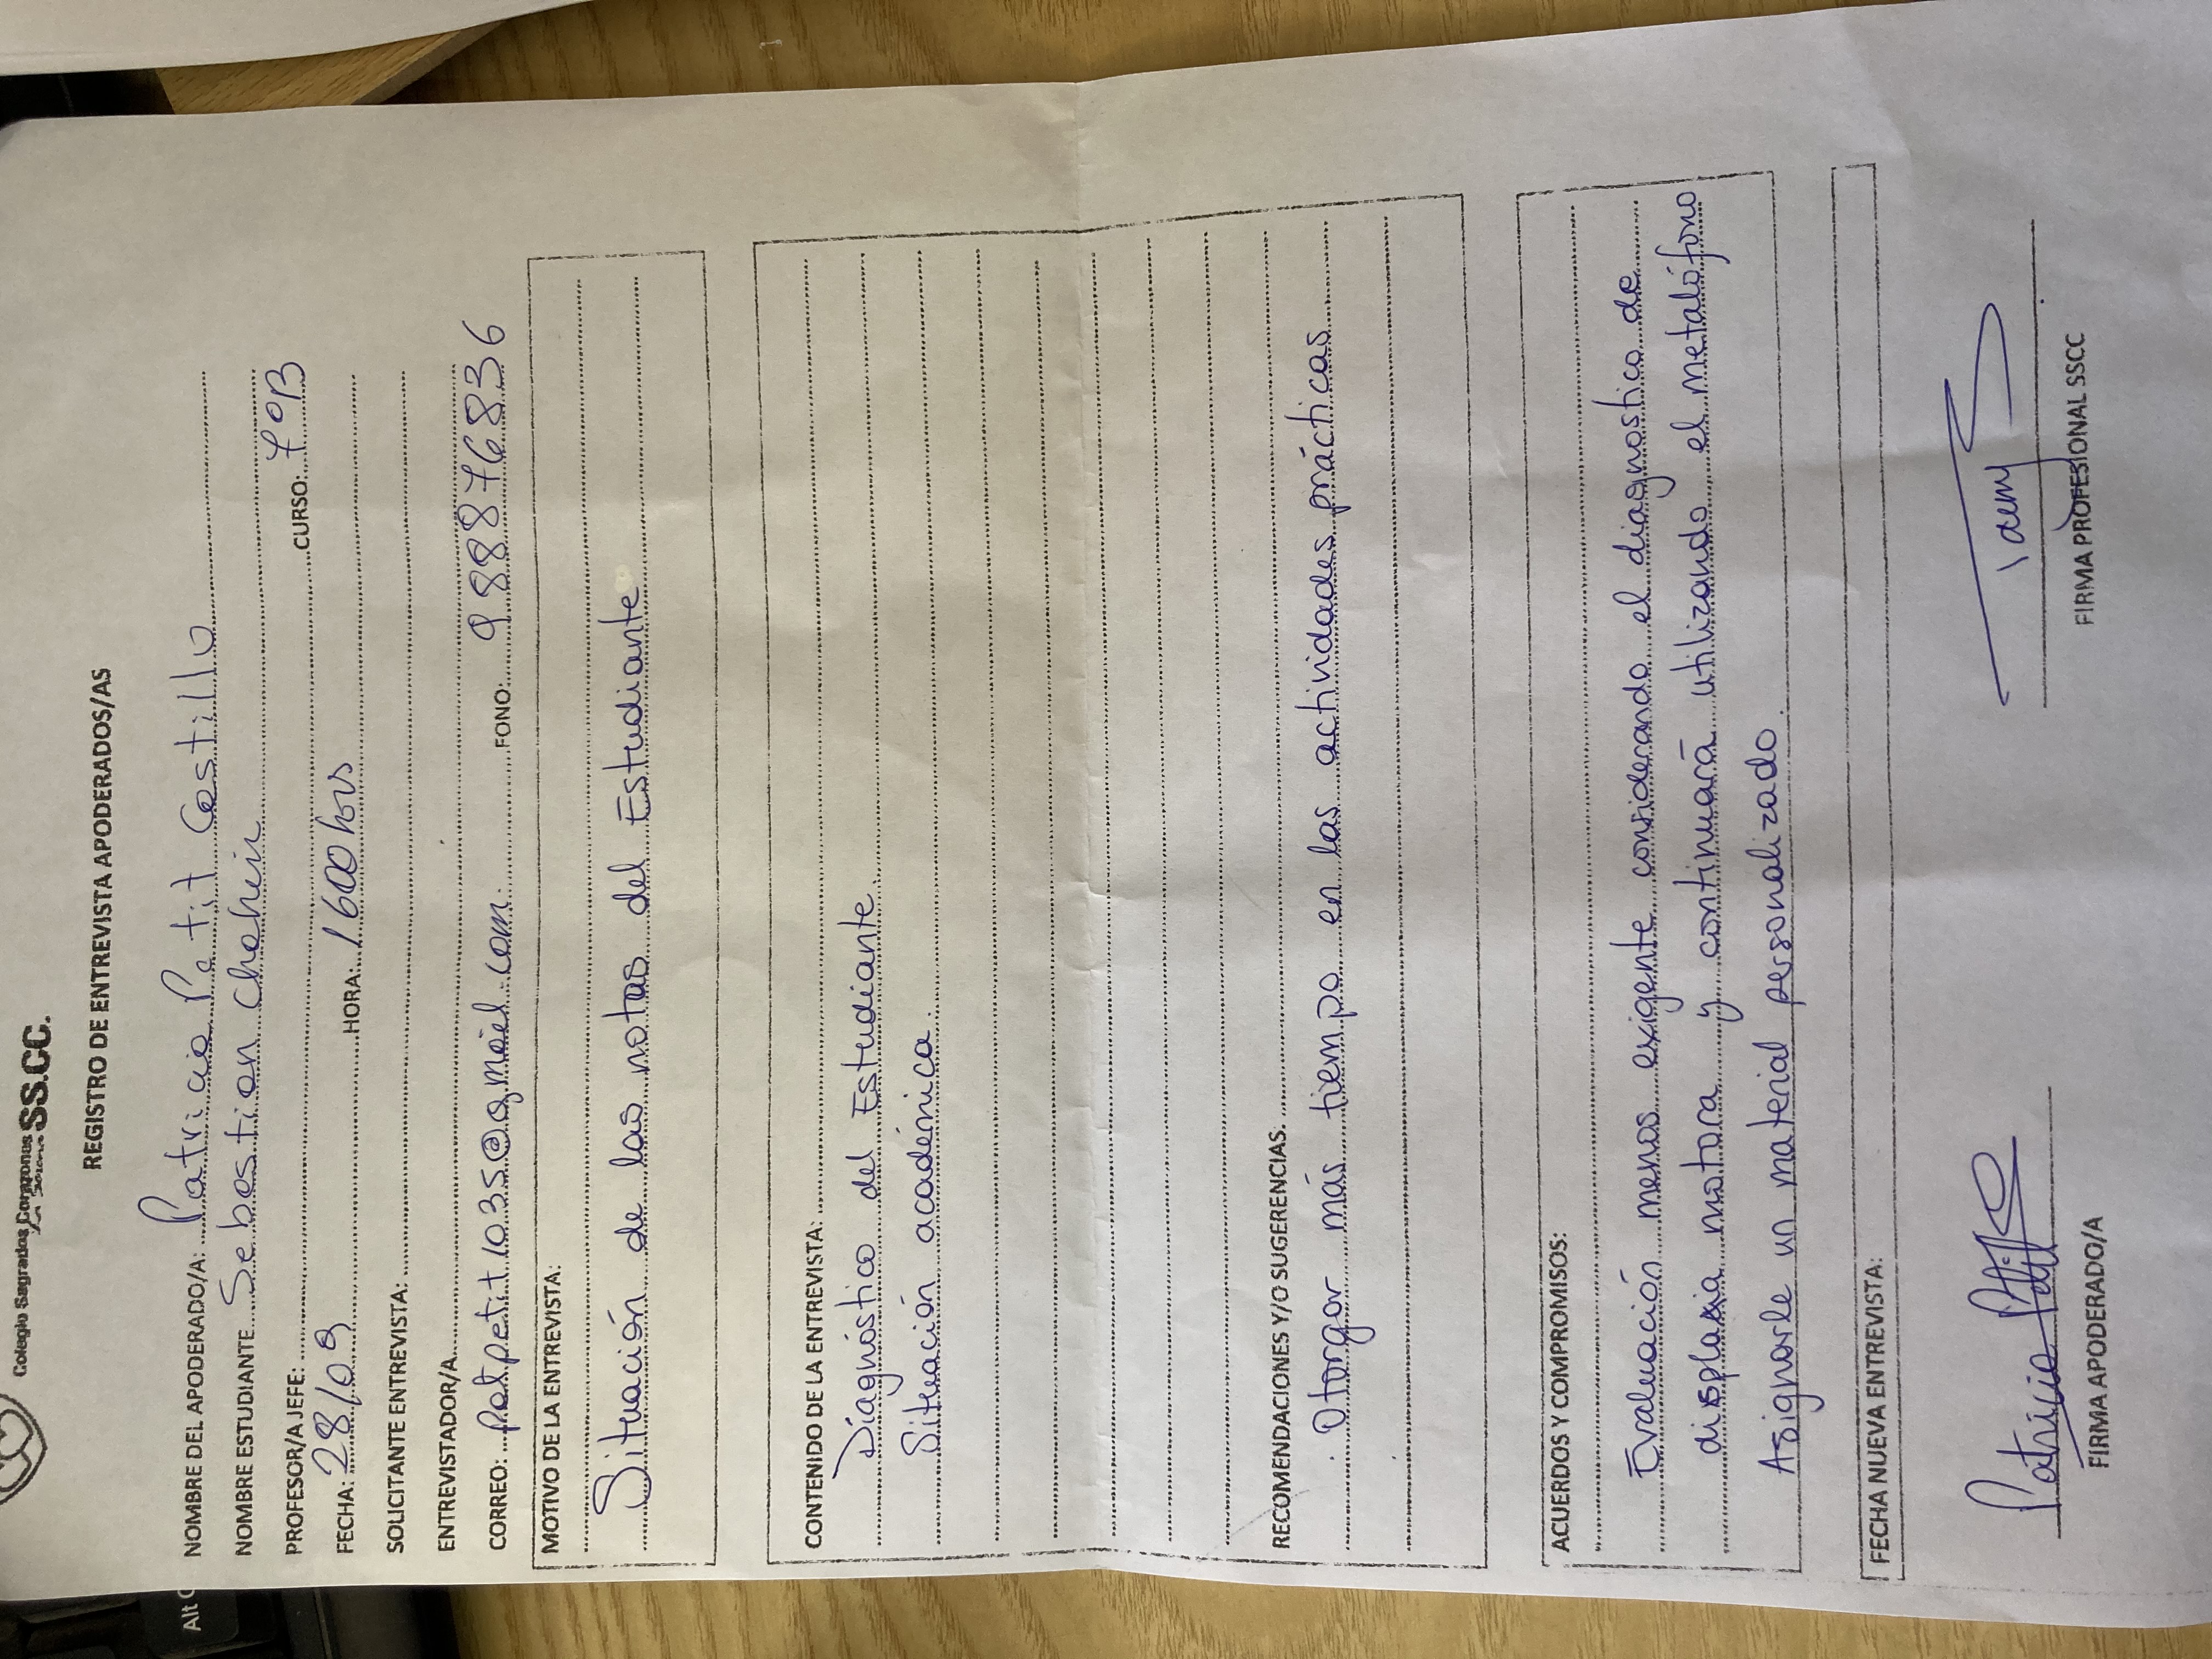 Colegio Sagrados Corazones SS.CC.
REGISTRO DE ENTREVISTA APODERADOS/AS
NOMBRE DEL APODERADO/A: Patricia Petit Castillo
NOMBRE ESTUDIANTE Sebastian Chahin
PROFESOR/A JEFE: CURSO: 7°B
FECHA: 28/09 HORA: 1600 hrs
SOLICITANTE ENTREVISTA:
ENTREVISTADOR/A
CORREO: patpetit1035@gmail.com. FONO: 988876836
MOTIVO DE LA ENTREVISTA:
Situación de las notas del Estudiante
CONTENIDO DE LA ENTREVISTA:
Diagnóstico del Estudiante
Situación académica.
RECOMENDACIONES Y/O SUGERENCIAS.
. Otorgar más tiempo en las actividades prácticas
ACUERDOS Y COMPROMISOS:
Evaluación menos exigente considerando el diagnostico de
displaxia motora y continuará utilizando el metalófono
Asignarle un material personalizado.
FECHA NUEVA ENTREVISTA:
Patricia Petit
FIRMA APODERADO/A
FIRMA PROFESIONAL SSCC
Alt